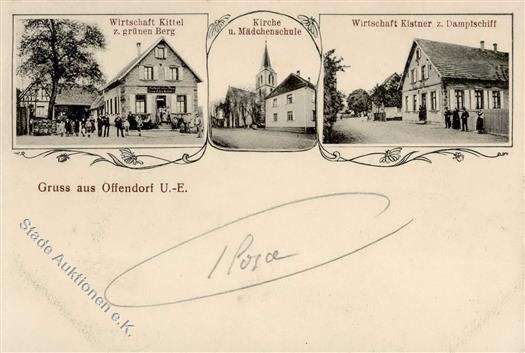 Wirtschaft Kittel
z. grünen Berg
Kirche
u. Mädchenschule
Wirtschaft Kistner z. Dampfschiff
Gruss aus Offendorf U.-E.
Stade Auktionen e.K.